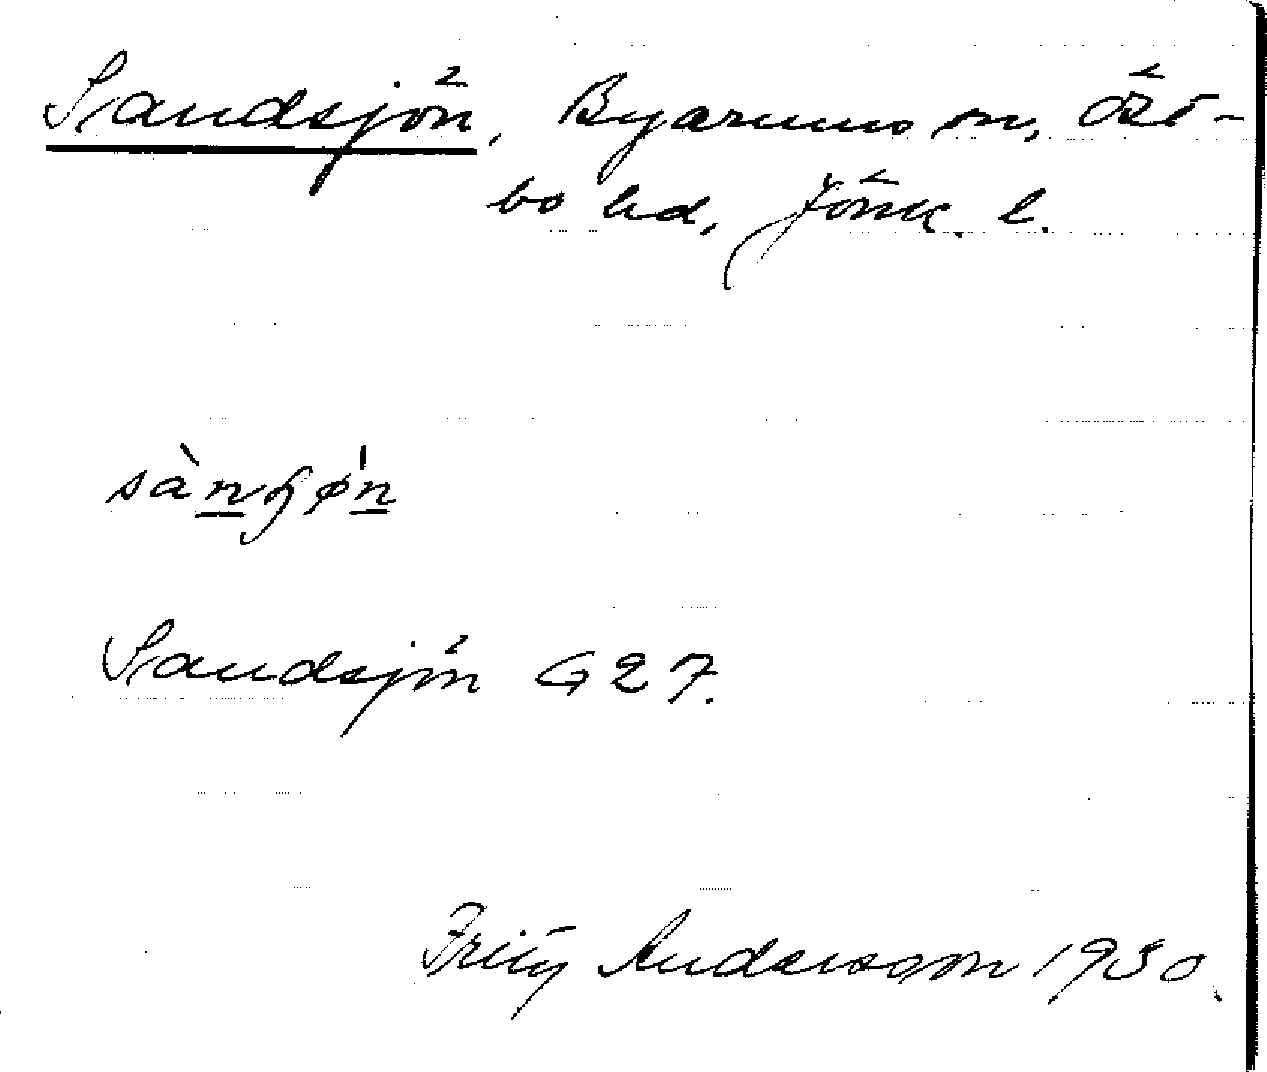 Sandsjön, Byarums sn, Östbo hd, Jönk. l.
sànɧø̀n
Sandsjön G27.
Fritz Andersson 1930.